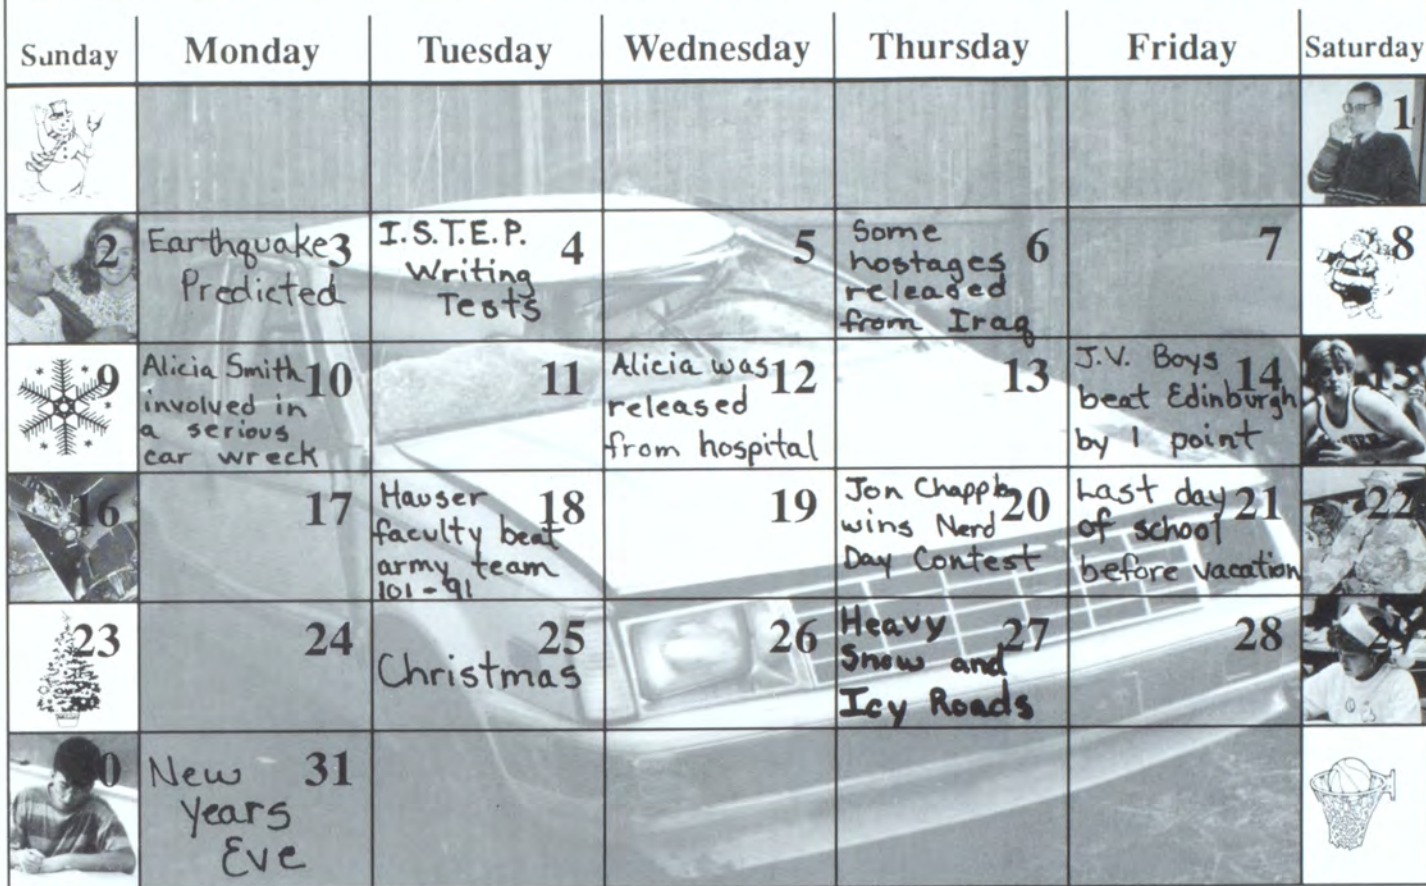 Sunday Monday Tuesday Wednesday Thursday Friday Saturday
1
2
3
Earthquake
Predicted
4
I.S.T.E.P.
Writing
Tests
5
6
Some
hostages
released
from Iraq
7
8
9
10
Alicia Smith
involved in
a serious
car wreck
11
12
Alicia was
released
from hospital
13
14
J.V. Boys
beat Edinburgh
by 1 point
15
16
17
18
Hauser
faculty beat
army team
101-91
19
20
Jon
wins Nerd
Day Contest
21
Last day
of school
before vacation
22
23
24
25
Christmas
26
27
Heavy
Snow and
Icy Roads
28
29
30
31
New
Years
Eve